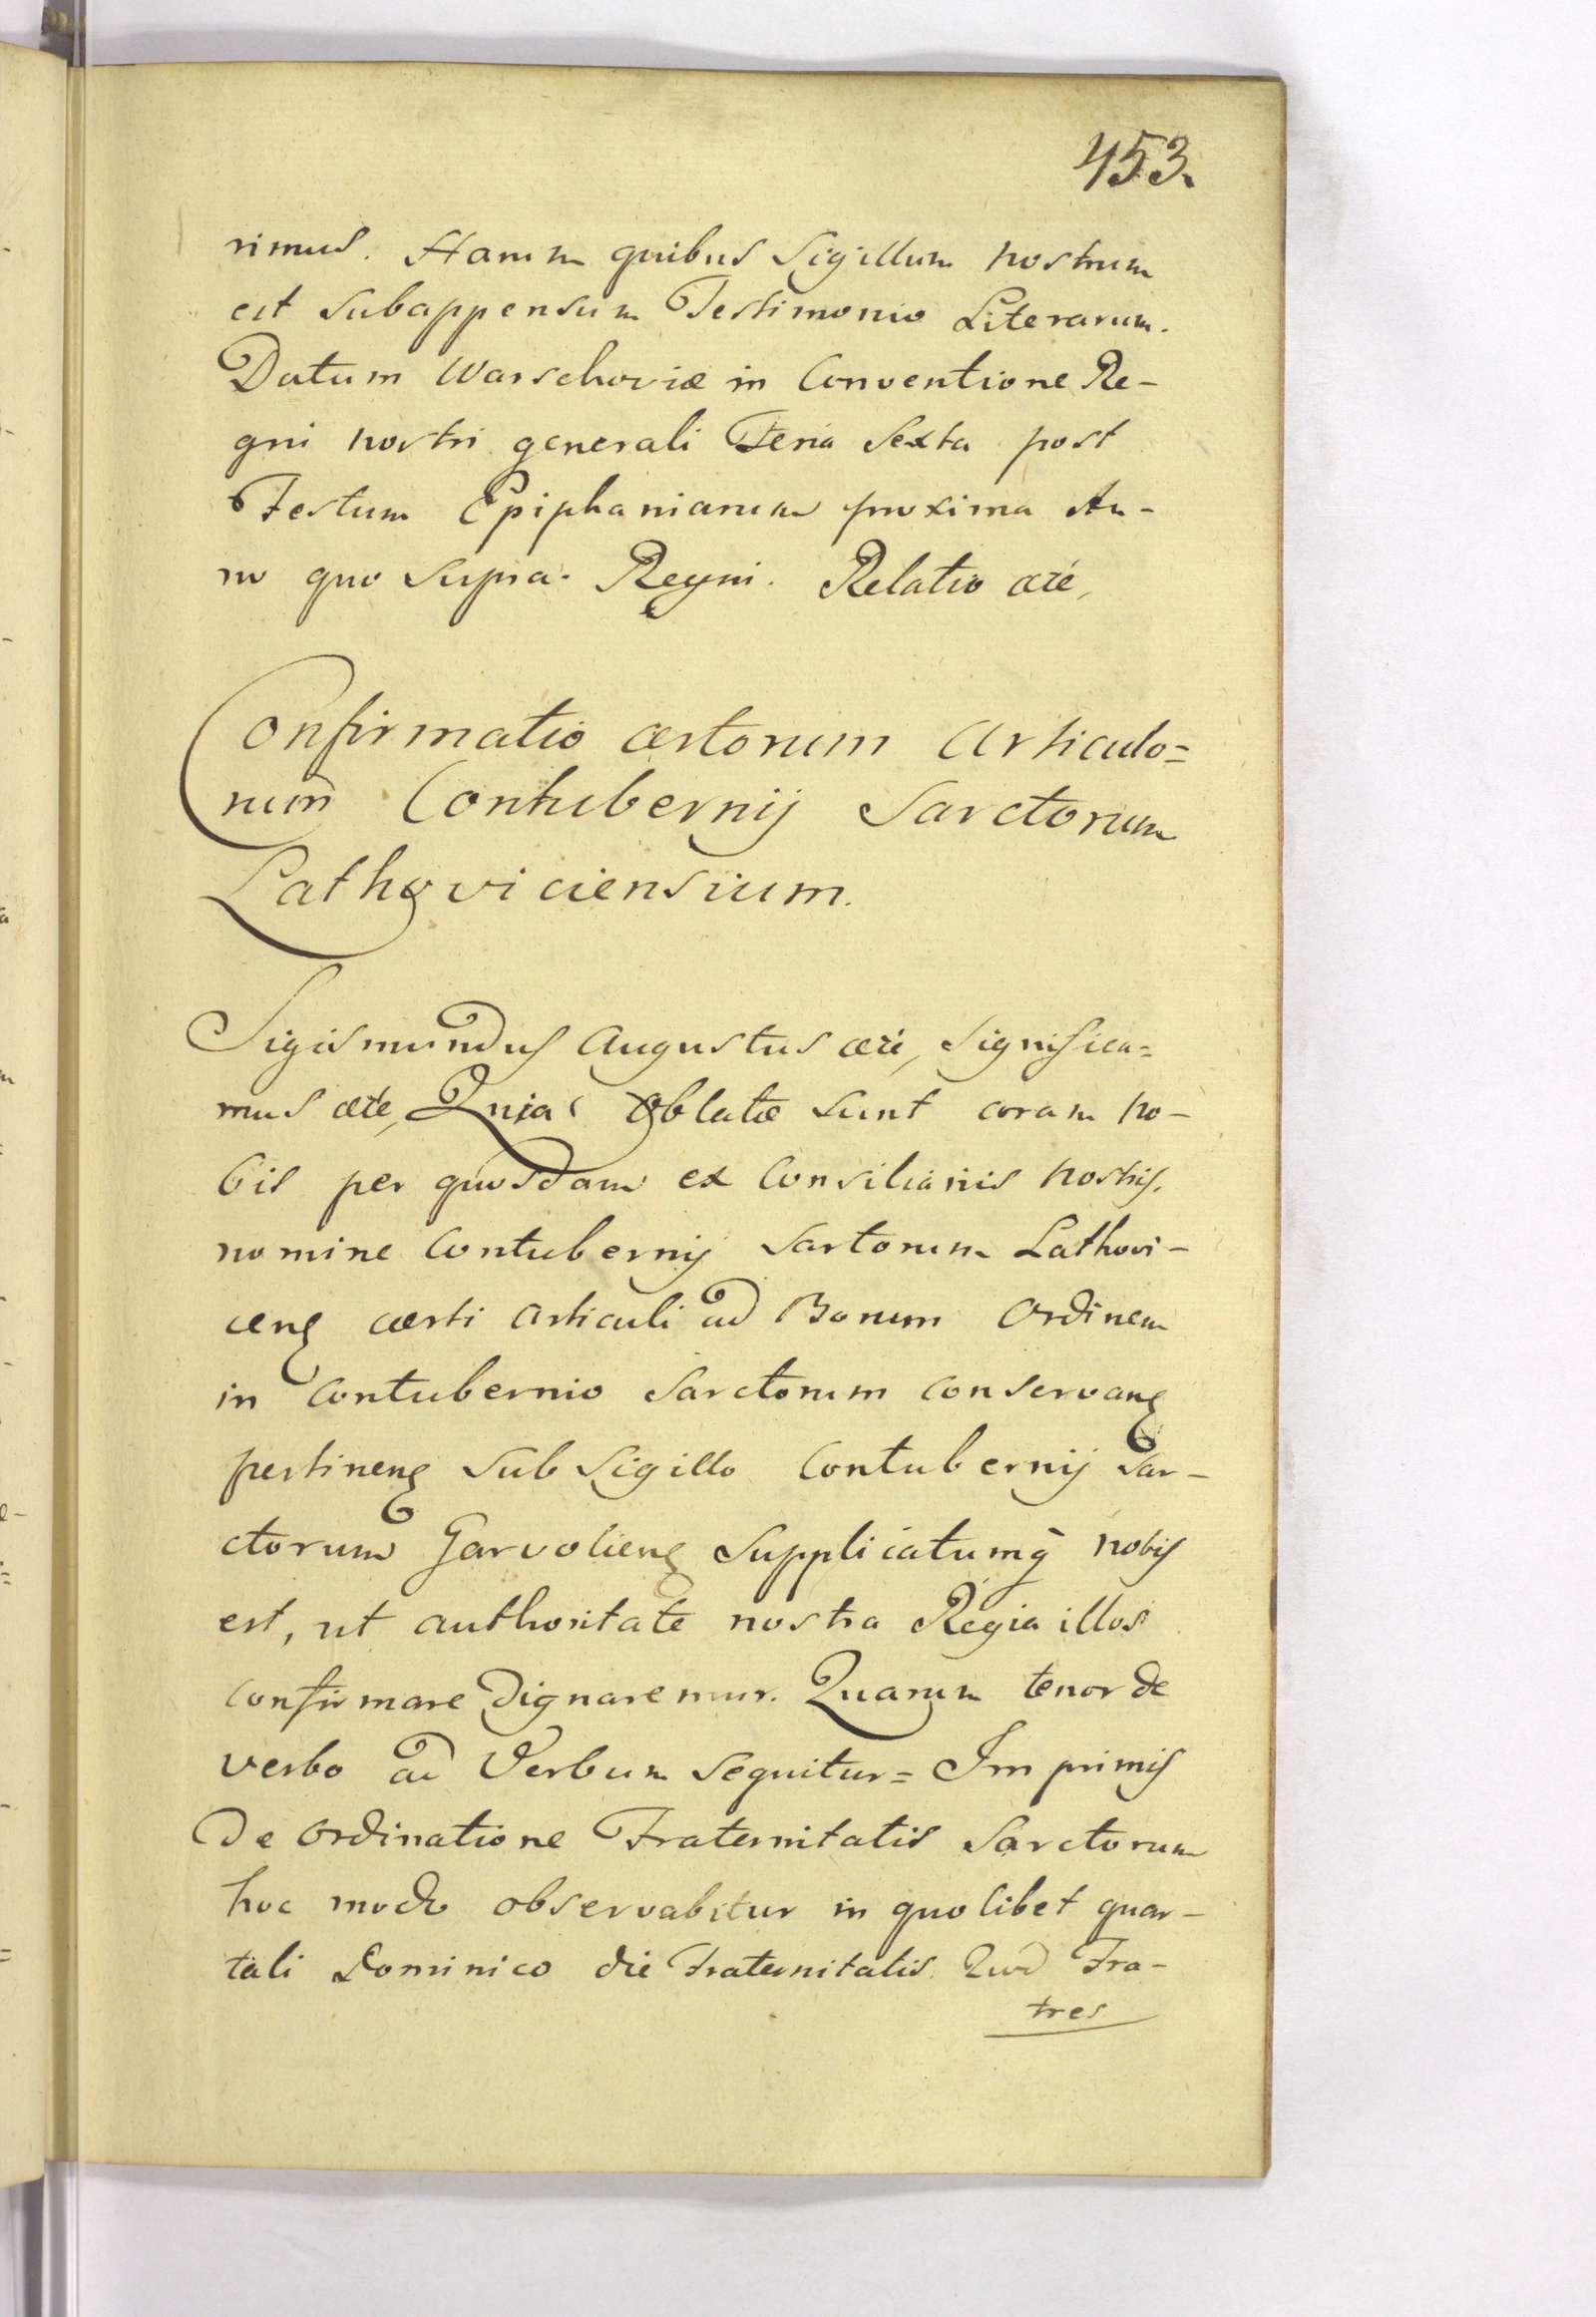 453.
rimus. Harum quibus Sigillum nostrum
est subappensum Testimonio Literarum.
Datum Warschoviæ in Conventione Re-
gni nostri generali Feria Sexta post
Festum Epiphaniarum proxima An-
no quo supra. Regni. Relatio etc,
Confirmatio certorum Articulo=
rum Contubernij Sarctorum
Lathoviciensium.
Sigismundus Augustus etc, Significa=
mus etc, Quia Oblatæ sunt coram no-
bis per quosdam ex Consiliariis nostris,
nomine Contubernij Sartorum Lathovi-
cenς cærti Articuli ad Bonum Ordinem
in Contubernio Sarctorum conservanς
pertinenς sub Sigillo Contubernij Sar-
ctorum Garvolienς Supplicatumq̀ nobis
est, ut authoritate nostra Regia illos
confirmare dignaremur. Quarum tenor de
verbo ad Verbum sequitur= Imprimis
De Ordinatione Fraternitatis Sarctorum
hoc modo observabitur in quolibet quar-
tali Dominico die Fraternitatis. Quod Fra-
tres